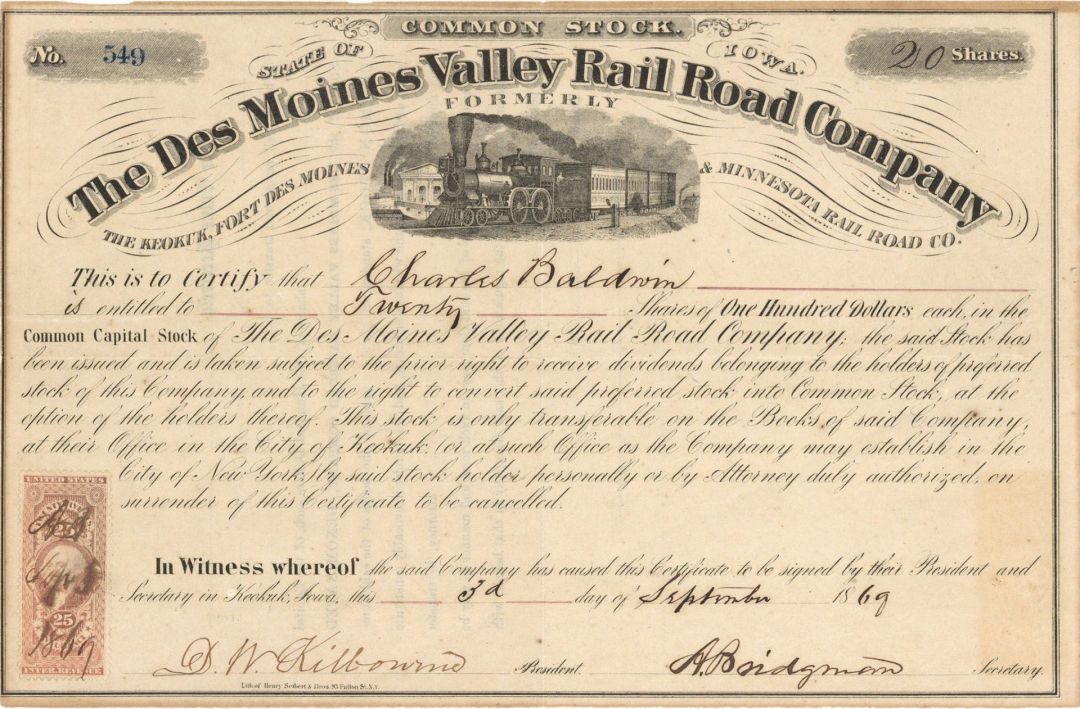 COMMON STOCK.
No. 549
STATE OF IOWA.
20 Shares.
The Des Moines Valley Rail Road Company
FORMERLY
THE KEOKUK, FORT DES MOINES & MINNESOTA RAIL ROAD CO.
This is to Certify that Charles Baldwin
is entitled to Twenty Shares of One Hundred Dollars each, in the
Common Capital Stock of The Des Moines Valley Rail Road Company; the said Stock has
been issued and is taken subject to the prior right to receive dividends belonging to the holders of preferred
stock of this Company, and to the right to convert said preferred stock into Common Stock, at the
option of the holders thereof. This stock is only transferable on the Books of said Company,
at their Office in the City of Keokuk, (or at such Office as the Company may establish in the
City of New York,) by said stock holder personally or by Attorney duly authorized, on
surrender of this Certificate to be cancelled.
In Witness whereof the said Company has caused this Certificate to be signed by their President and
Secretary in Keokuk, Iowa, this 3d day of September 1869
D. W. Kilbourne President. A. Bridgman Secretary.
Lith. of Henry Seibert & Bros. 93 Fulton St. N.Y.
UNITED STATES
25
Sept 3
1869
25
INTER. REVENUE